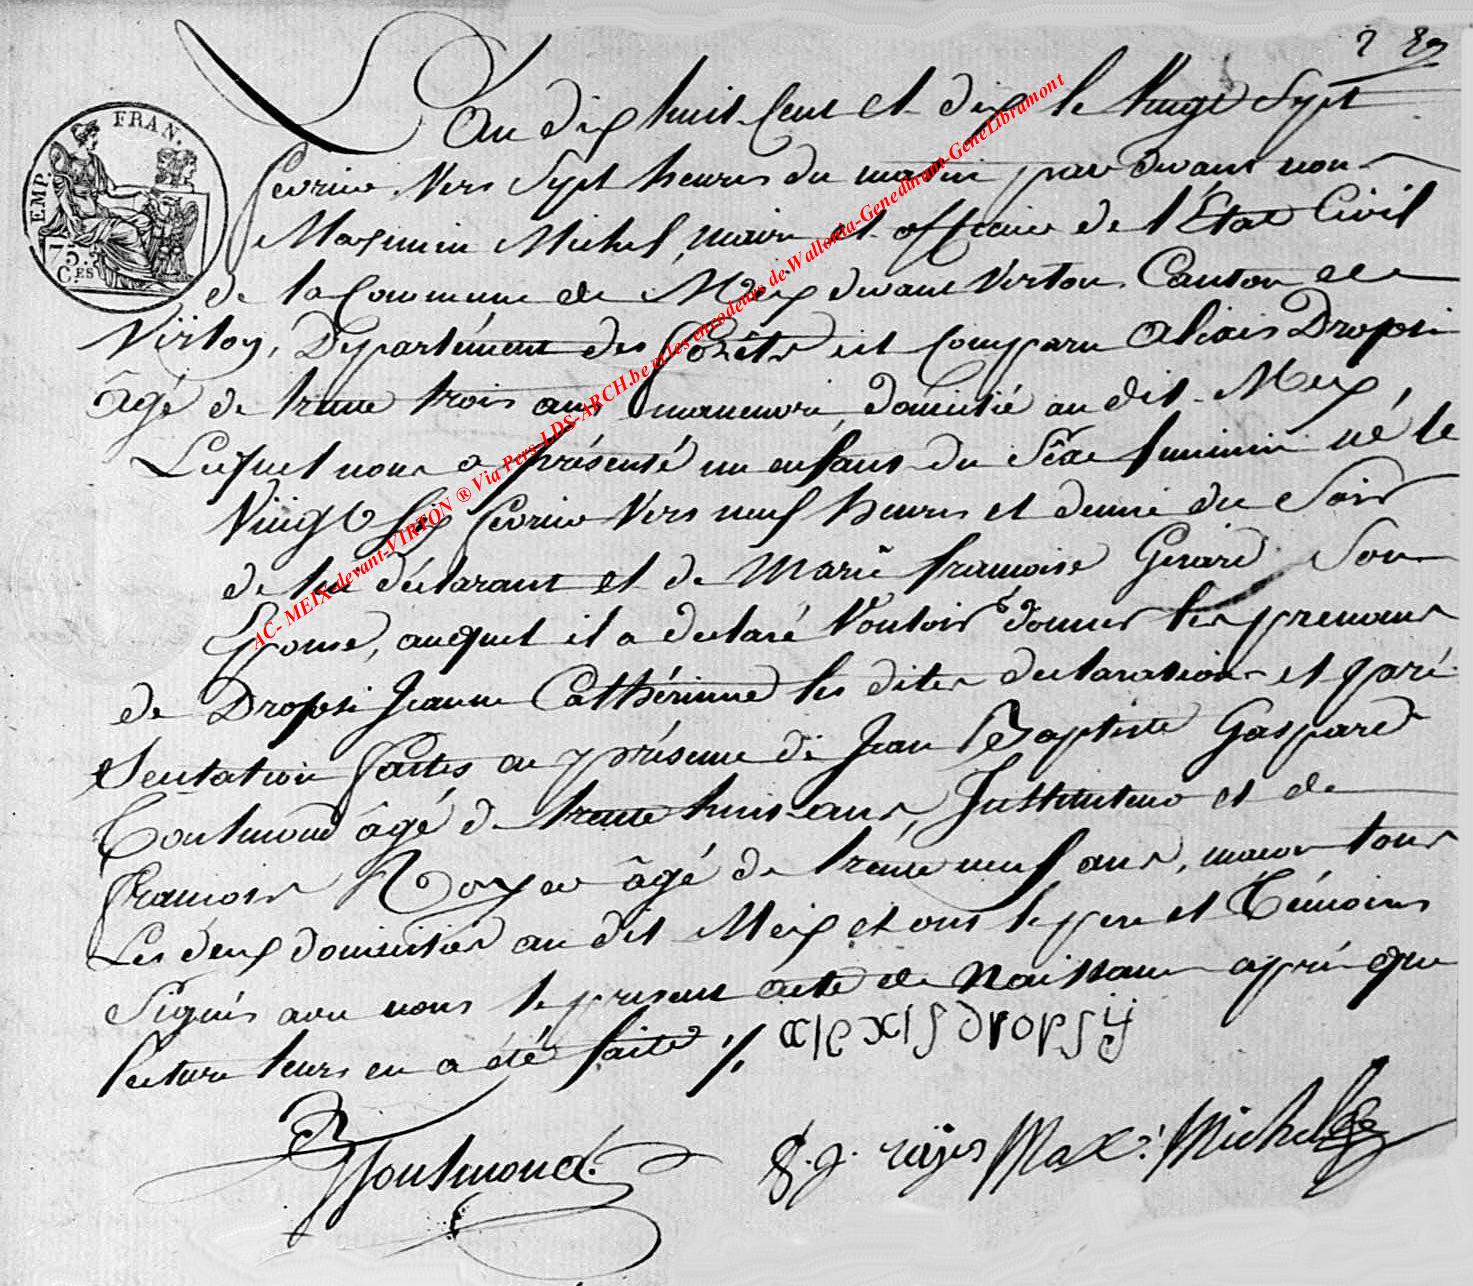 2 89
FRAN.
EMP.
75.
C.ES
L'an dix huit Cent et dix le Vingt Sept
fevrier Vers Sept heures du matin, par devant nous
Maximin Michel, maire et officier de l'Etat Civil
de la Commune de Meix devant Virton, Canton de
Virton, Département des forêts est Comparu Alexis Dropsi
âgé de trente trois ans manœuvre domicilié au dit Meix,
Lequel nous a présenté un enfant du Sexe feminin né le
Vingt Six fevrier Vers neuf heures et demie du Soir
de lui déclarant et de Marie françoise Gerard Son
Epouse, auquel il a declaré Vouloir donner les prenoms
de Dropsi Jeanne Cathérinne les dites declarations et pré
Sentation faites en présence de Jean Baptiste Gaspard
Toutmond âgé de trente huit ans, Instituteur et de
françois Royer âgé de trente neuf ans, macon tous
Les deux domiciliés au dit Meix et ont le pere et Témoins
Signés avec nous le present acte de Naissance aprés que
lecture leurs en a été faite ./.
alexis dropsy
Toutmond.
f. j. roÿer Max: Michel
AC- MEIX-devant-VIRTON ® Via Pers-LDS-ARCH.be et les encodeurs de Wallonia-Genedinant-GeneLibramont